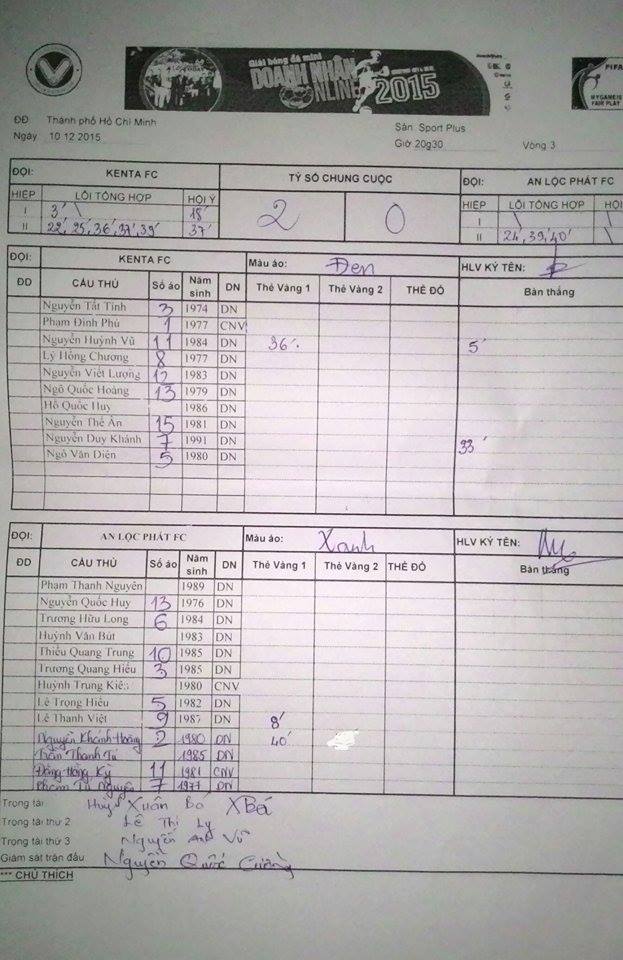 Giải bóng đá mini
DOANH NHÂN
ONLINE 2015
FIFA
MY GAME IS
FAIR PLAY
ĐĐ Thành phố Hồ Chí Minh
Sân Sport Plus
Ngày 10 12 2015
Giờ 20g30 Vòng 3
ĐỘI: KENTA FC TỶ SỐ CHUNG CUỘC ĐỘI: AN LỘC PHÁT FC
HIỆP LỖI TỔNG HỢP HỘI Ý 2 0 HIỆP LỖI TỔNG HỢP HỘI
I 3' \ 18' I \ \
II 22', 25', 36', 37', 39' 37' II 24', 39', 40' \
ĐỘI: KENTA FC Màu áo: Đen HLV KÝ TÊN:
ĐD CẦU THỦ Số áo Năm sinh DN Thẻ Vàng 1 Thẻ Vàng 2 THẺ ĐỎ Bàn thắng
Nguyễn Tất Tính 3 1974 DN
Phạm Đình Phú 1 1977 CNV
Nguyễn Huỳnh Vũ 11 1984 DN 36' 5'
Lý Hồng Chương 8 1977 DN
Nguyễn Viết Lượng 12 1983 DN
Ngô Quốc Hoàng 13 1979 DN
Hồ Quốc Huy 1986 DN
Nguyễn Thế Ân 15 1981 DN
Nguyễn Duy Khánh 7 1991 DN 33'
Ngô Văn Diện 5 1980 DN
ĐỘI: AN LỘC PHÁT FC Màu áo: Xanh HLV KÝ TÊN:
ĐD CẦU THỦ Số áo Năm sinh DN Thẻ Vàng 1 Thẻ Vàng 2 THẺ ĐỎ Bàn thắng
Phạm Thanh Nguyên 1989 DN
Nguyễn Quốc Huy 13 1976 DN
Trương Hữu Long 6 1984 DN
Huỳnh Văn Bút 1983 DN
Thiều Quang Trung 10 1985 DN
Trương Quang Hiếu 3 1985 DN
Huỳnh Trung 1980 CNV
Lê Trọng Hiếu 5 1982 DN
Lê Thanh Việt 9 1987 DN 8'
Nguyễn Khánh Hoàng 2 1980 DN 40'
Trần Thanh Tú 1985 DN
Đặng Hồng Kỳ 11 1981 CNV
Phạm Tú Nguyên 7 1977 DN
Trọng tài Huỳnh Xuân Bá XBá
Trọng tài thứ 2 Lê Thị Ly
Trọng tài thứ 3 Nguyễn Anh Vũ
Giám sát trận đấu Nguyễn Quốc Cường
*** CHÚ THÍCH